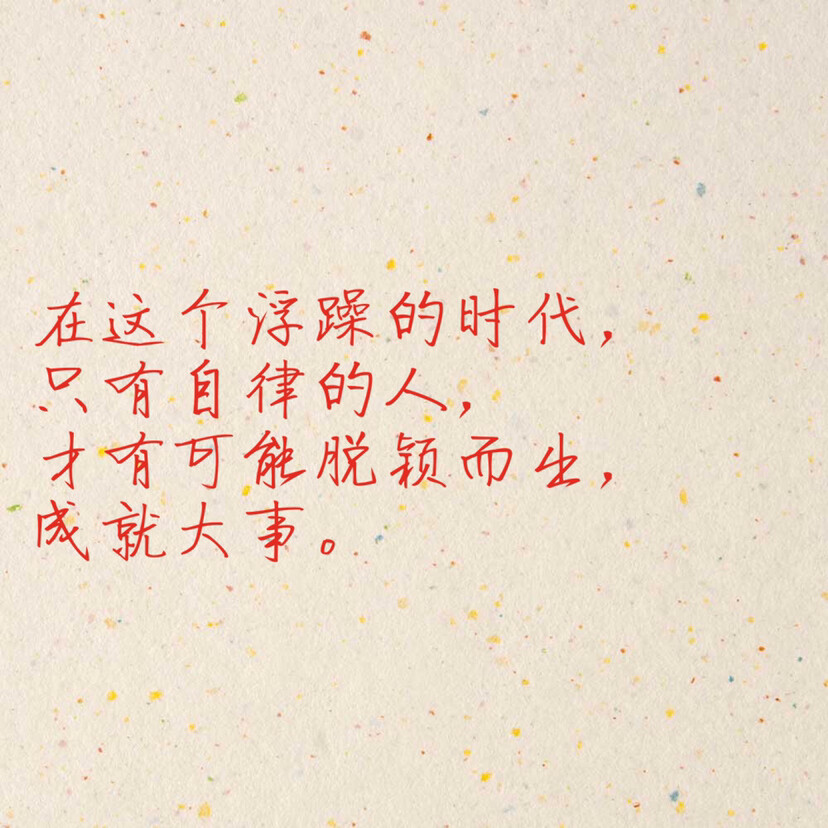 在这个浮躁的时代，
只有自律的人，
才有可能脱颖而出，
成就大事。